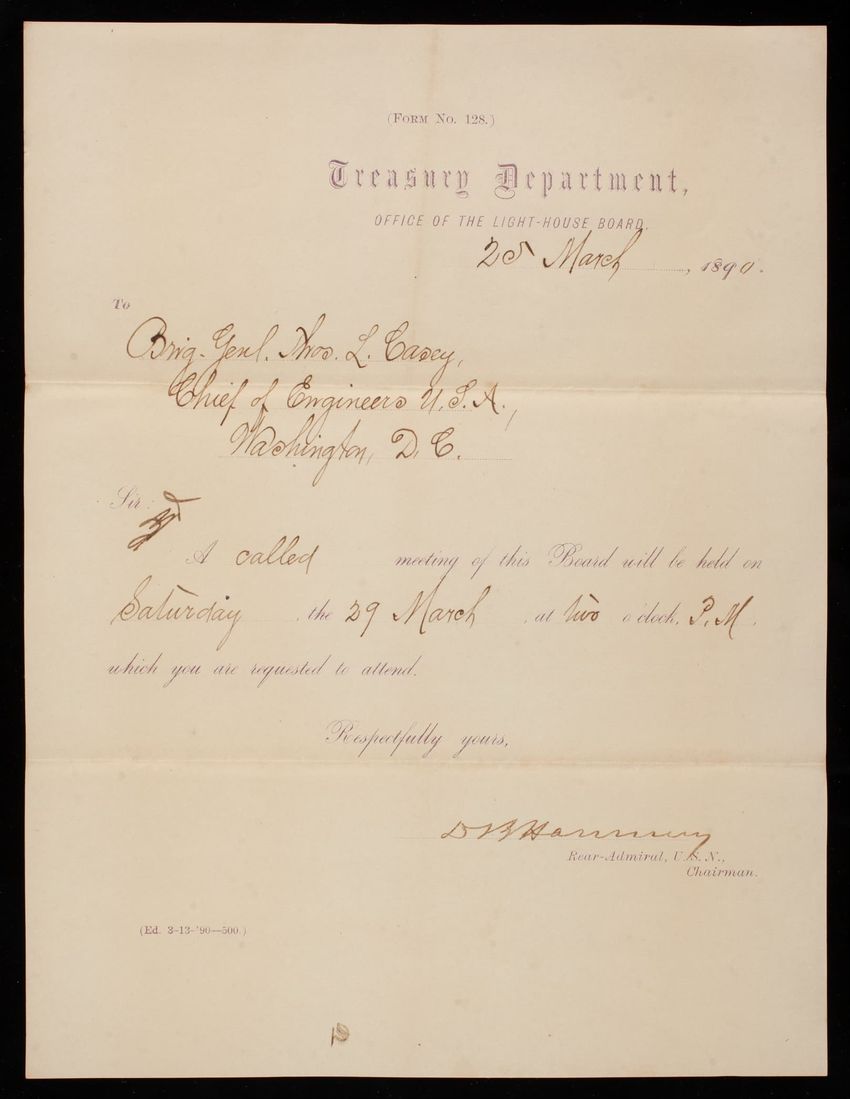 (FORM NO. 128.)
Treasury Department,
OFFICE OF THE LIGHT-HOUSE BOARD,
25 March, 1890.
To
Brig. Genl. Thos. L. Casey,
Chief of Engineers U.S.A.,
Washington, D.C.
Sir:
A called meeting of this Board will be held on
Saturday, the 29 March, at two o'clock, P.M.
which you are requested to attend.
Respectfully yours,
D B Harmony
Rear-Admiral, U.S.N.,
Chairman.
(Ed. 3-13-'90—500.)